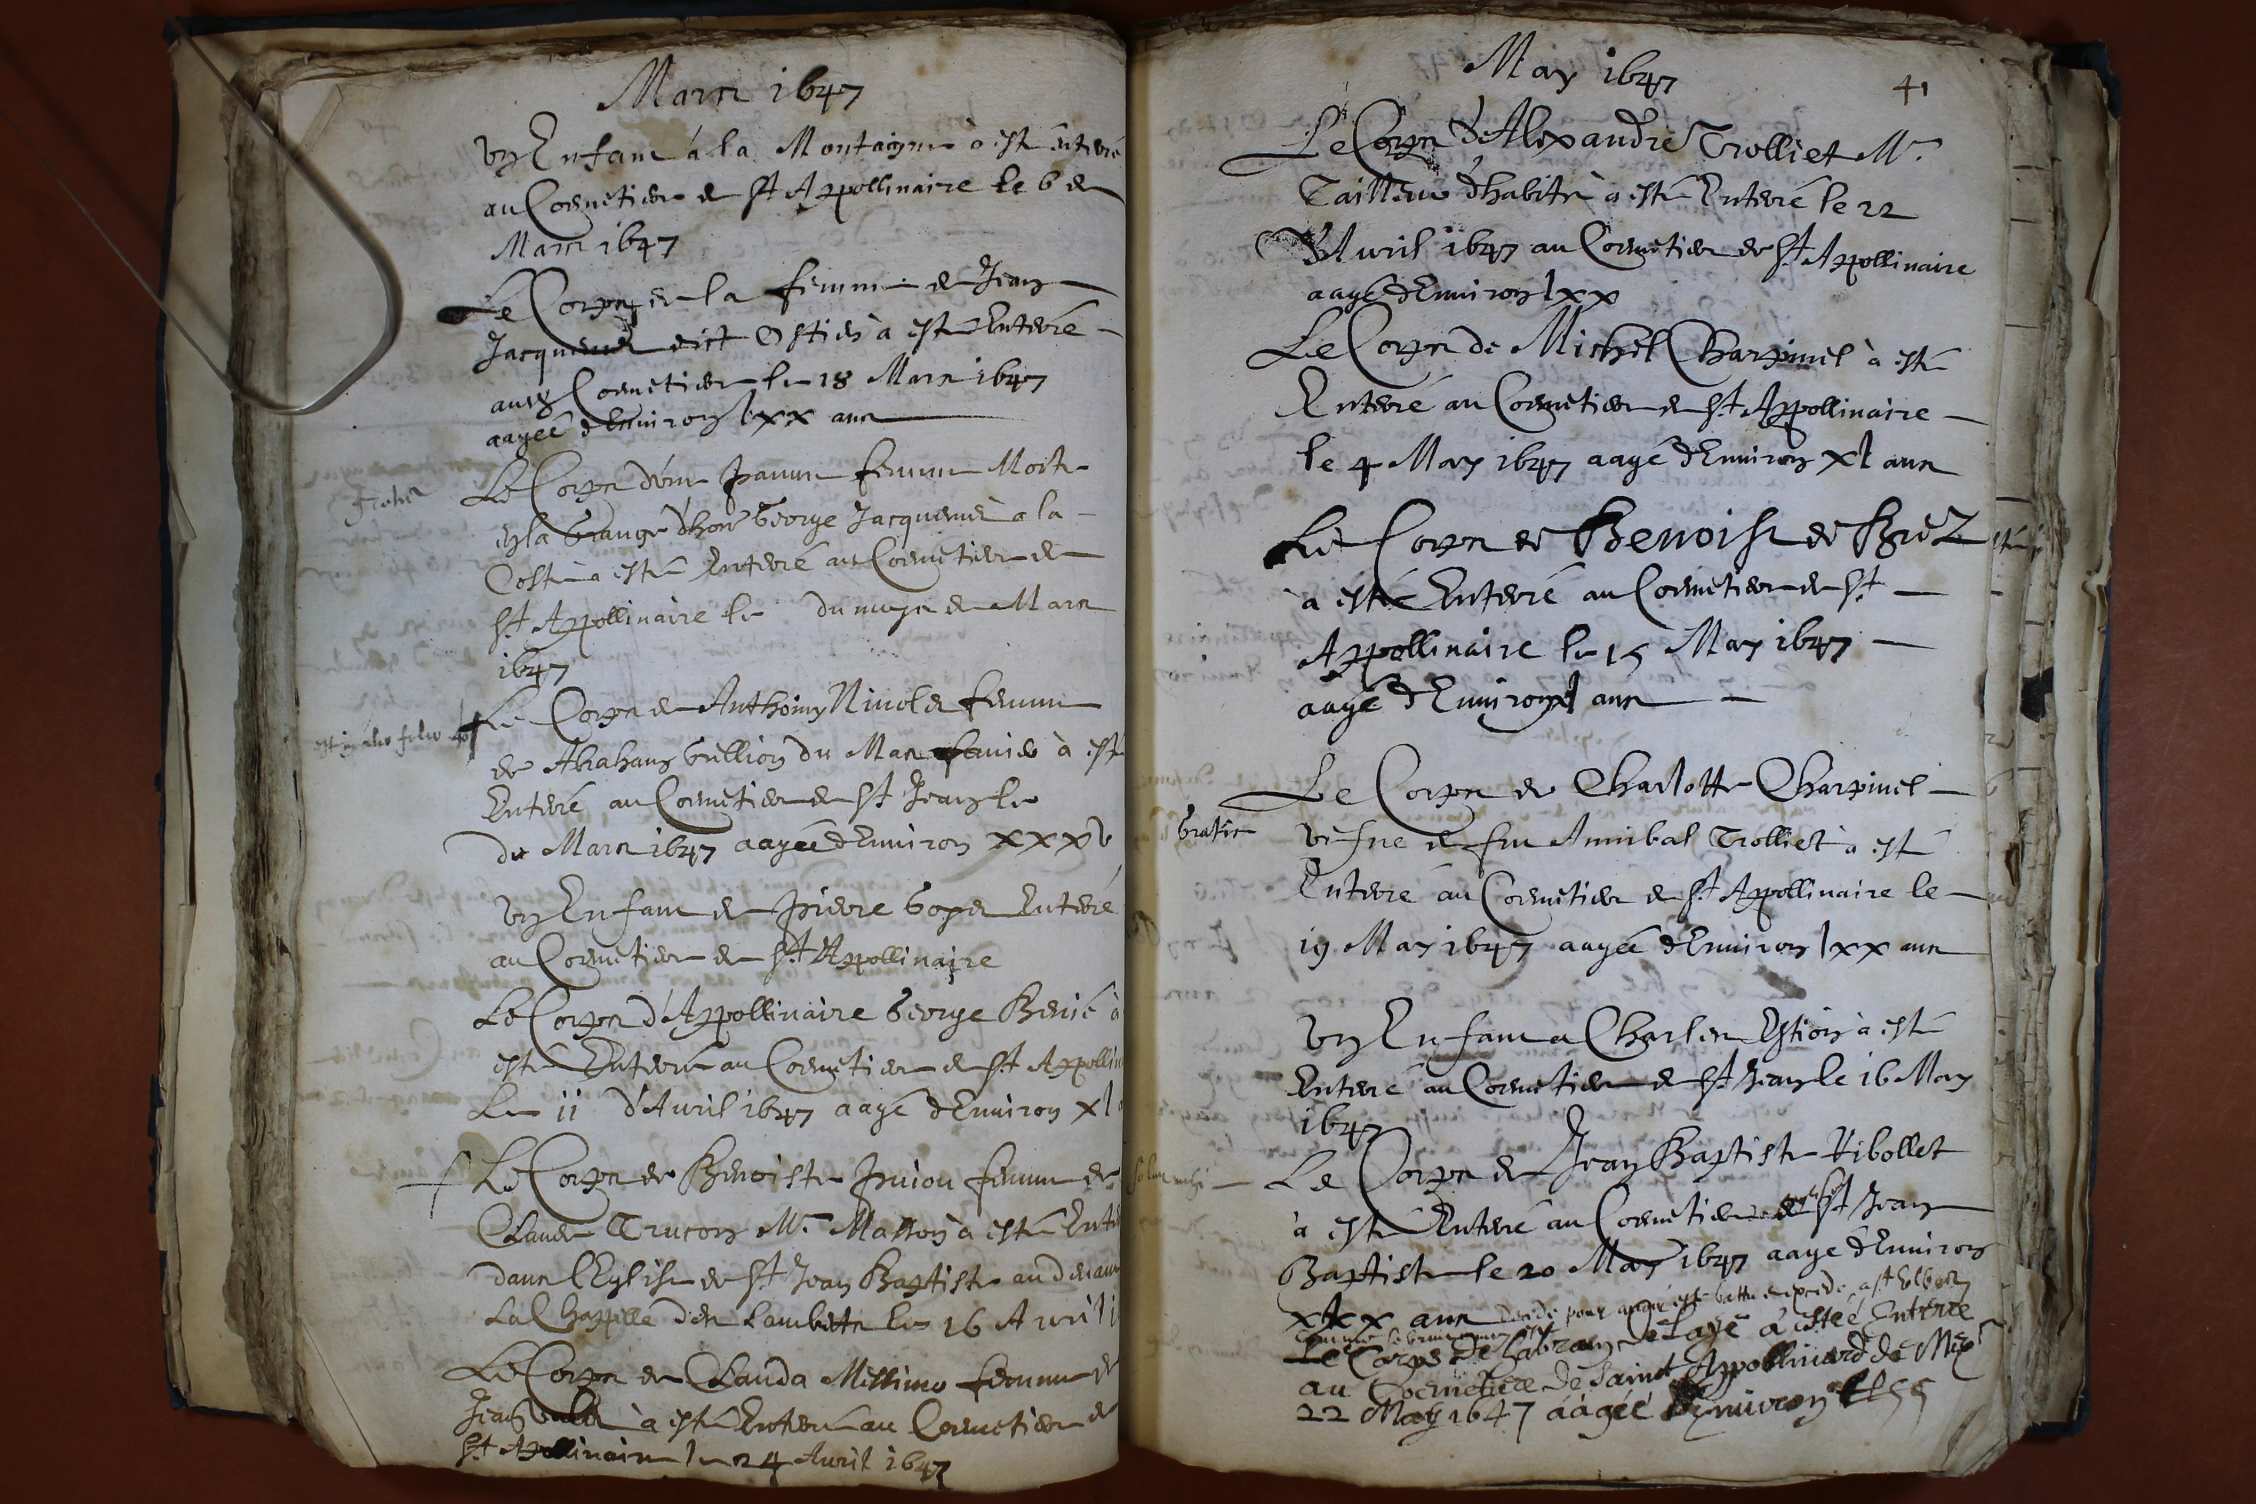 Mars 1647
Un Enfant à la Montaigne à esté Enterré
au Coemetiere de St Appollinaire le 6 de
Mars 1647
Le Corps de la femme de Jean
Jacquemet dict Ostier à esté Enterré
au Coemetiere le 18 Mars 1647
aagée d'Environ lxx ans
Le Corps d'une pauvre femme Morte
en la Grange d'hon George Jacquemet a la
Coste à esté Enterré au Coemetiere de
St Appollinaire le du moys de Mars
1647
Le Corps de Anthoiny Nicolet femme
de Abraham Gullion du Mas à esté
Enterré au Coemetiere de St Jean le
de Mars 1647 aagée d'Environ xxxv
Un Enfant de Pierre Goyet Enterré
au Coemetiere de St Appollinaire
Le Corps d'Appollinaire George Benié à
esté Enterré au Coemetiere de St Appollin
Le 11 d'Avril 1647 aagé d'Environ xl
Le Corps de Benoiste femme de
Claude Trucon Mr Masson à esté Enter
dans l'Eglise de St Jean Baptiste au devant
La Chappelle des Lamberts le 16 Avril
Le Corps de Clauda Millino femme de
Jean à esté Enterré au Coemetiere de
St Appollinaire le 24 Avril 1647
May 1647
41
Le Corps d'Alexandre Trolliet Mr
Tailleur d'habits à esté Enterré le 22
Avril 1647 au Coemetiere de St Appollinaire
aagé d'Environ lxx
Le Corps de Michel Charpinel à esté
Enterré au Coemetiere de St Appollinaire
le 4 May 1647 aagé d'Environ xl ans
Le Corps de Benoist de Briez
à esté Enterré au Coemetiere de St
Appollinaire le 15 May 1647
aagé d'Environ xl ans
Le Corps de Charlotte Charpinel
Gratis
vefve de feu Annibal Trolliet à esté
Enterré au Coemetiere de St Appollinaire le
19 May 1647 aagée d'Environ lxx ans
Un Enfant a Charles Estion à esté
Enterré au Coemetiere de St Jean le 16 May
1647
Le Corps de Jean Baptiste Ribollet
à esté Enterré au Coemetiere de St Jean
Baptiste le 20 May 1647 aagé d'Environ
xxx ans decedé pour avoir esté battu
Le Corps de à esteé Enterré
au Coemetiere de Saint Appollinard de
22 May 1647 aagéé Denviron 55